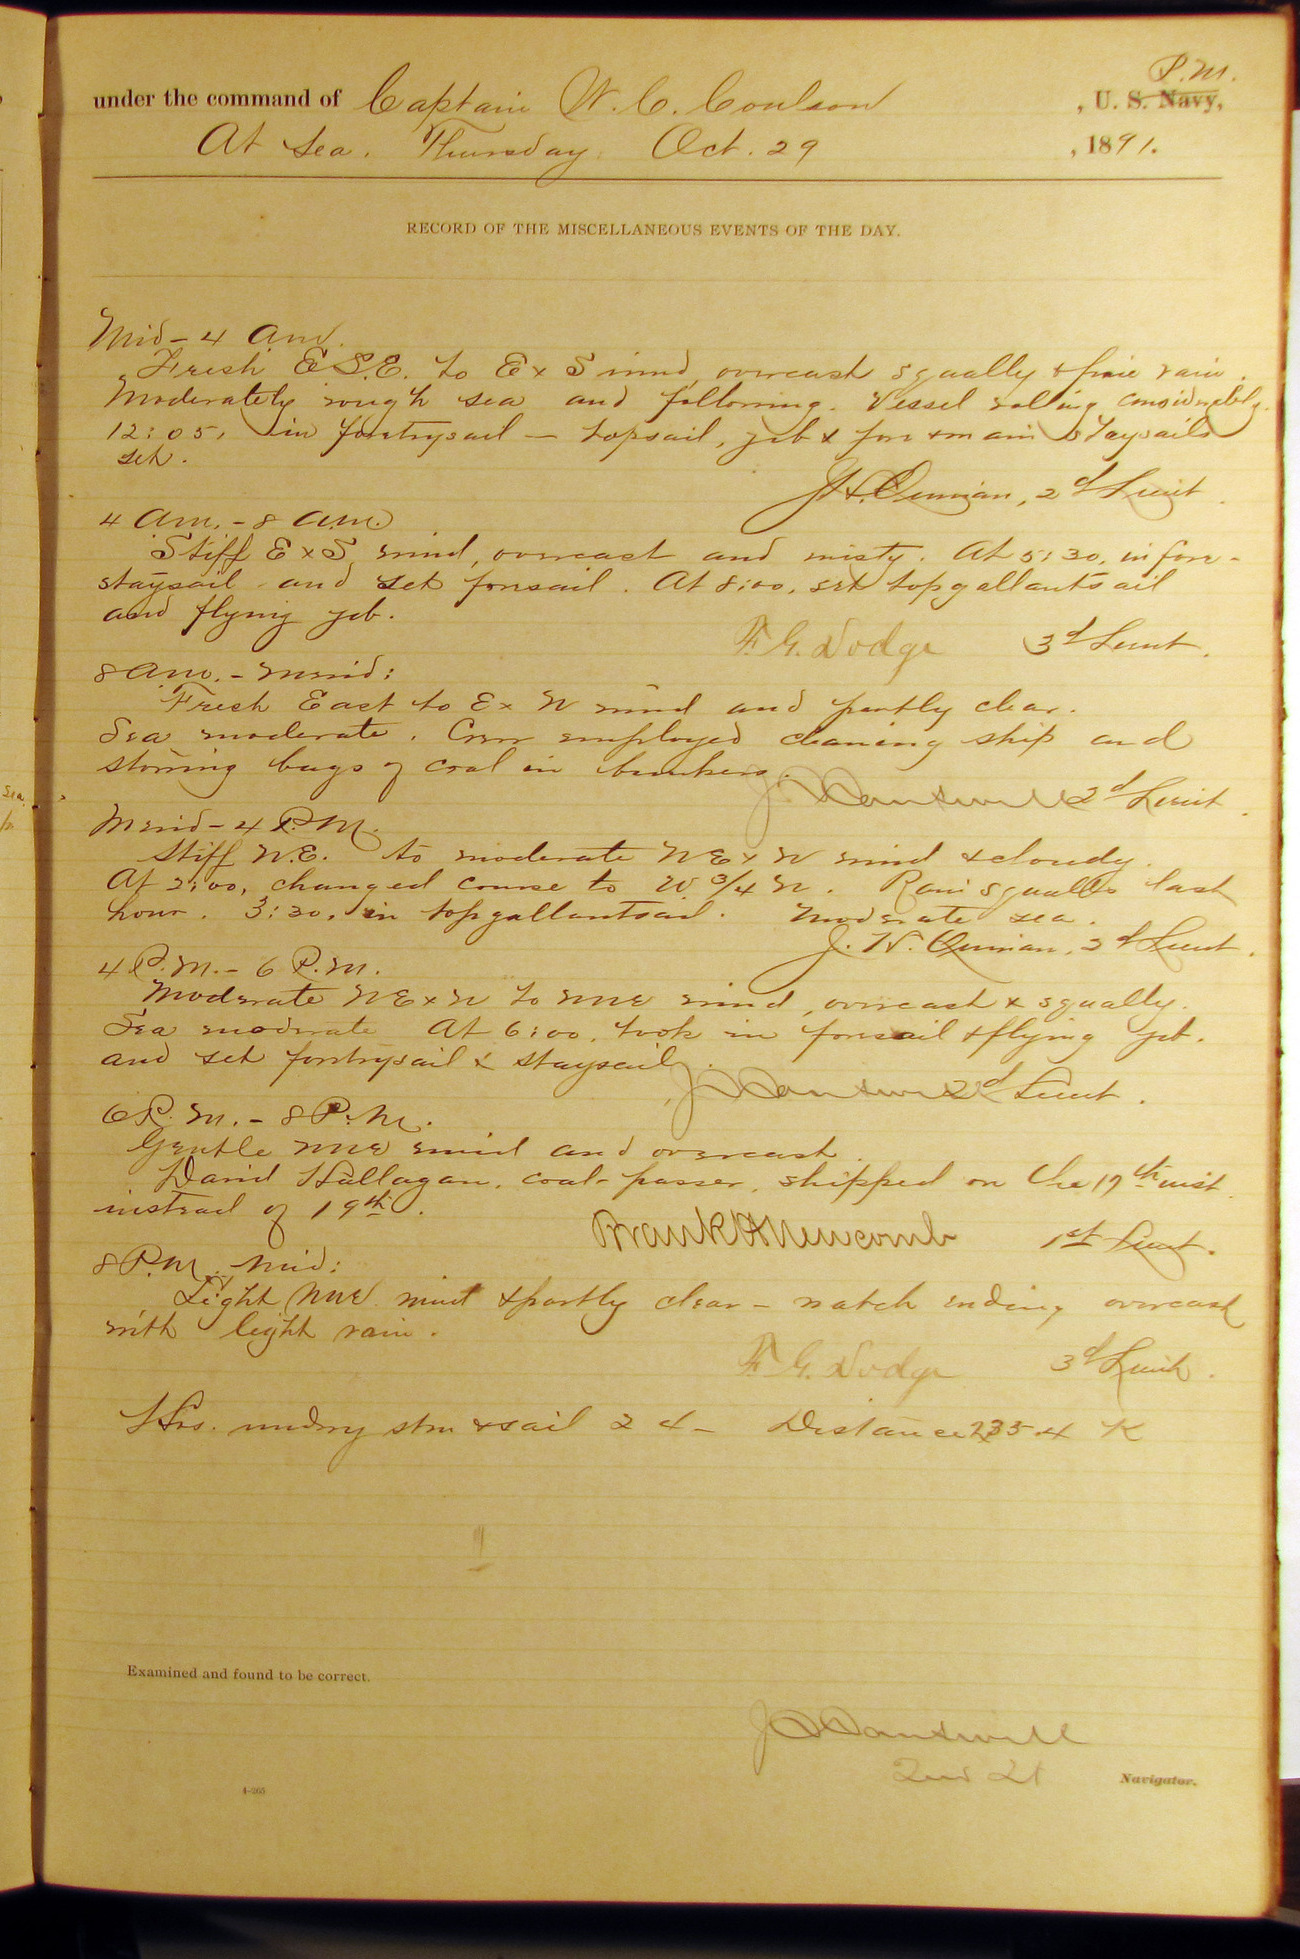 R.M.
under the command of Captain W. C. Coulson , U. S. Navy,
At Sea. Thursday Oct. 29 , 1891.
RECORD OF THE MISCELLANEOUS EVENTS OF THE DAY.
Mid - 4 am.
Fresh E S.E. to E x S wind, overcast squally & fine rain.
Moderately rough sea and following. Vessel rolling considerably.
12:05, in foretrysail — topsail, jib & fore & main staysails
set.
J. H. Quinan, 2d Lieut.
4 am. - 8 a.m.
Stiff E x S wind, overcast and misty. At 5:30, in fore-
staysail and set foresail. At 8:00, set topgallantsail
and flying jib.
F. G. Dodge 3d Lieut.
8 am. - merid:
Fresh East to E x N wind and partly clear.
Sea moderate. Crew employed cleaning ship and
storing bags of coal in bunkers.
J. C. Cantwell 2d Lieut.
Merid - 4 P.M.
Stiff N.E. to moderate NE x N wind & cloudy.
At 2:00, changed course to W 3/4 N. Rain squalls last
hour. 3:30, in topgallantsail. Moderate sea.
J. H. Quinan, 2d Lieut.
4 P.M. - 6 P.M.
Moderate NE x N to NNE wind, overcast & squally.
Sea moderate At 6:00, took in foresail & flying jib.
and set foretrysail & staysail.
J. C. Cantwell 2d Lieut.
6 P.M. - 8 P.M.
Gentle NNE wind and overcast.
David Hallagan, coal-passer, shipped on the 17th inst.
instead of 19th.
Frank H Newcomb 1st Lieut.
8 P.M. Mid:
Light NNE wind & partly clear - watch ending overcast
with light rain.
F. G. Dodge 3d Lieut.
Hrs. under stm & sail 24 - Distance 235.4 K
Examined and found to be correct.
J C Cantwell
2nd Lt Navigator.
4-265